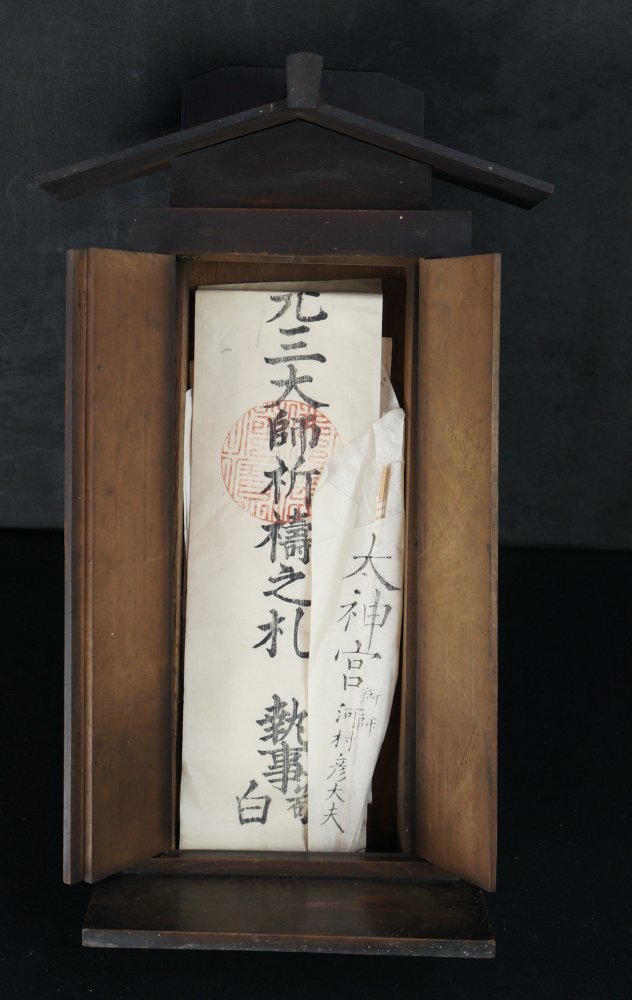 元三大師祈禱之札 執事
白
太神宮
御師
河村彦大夫